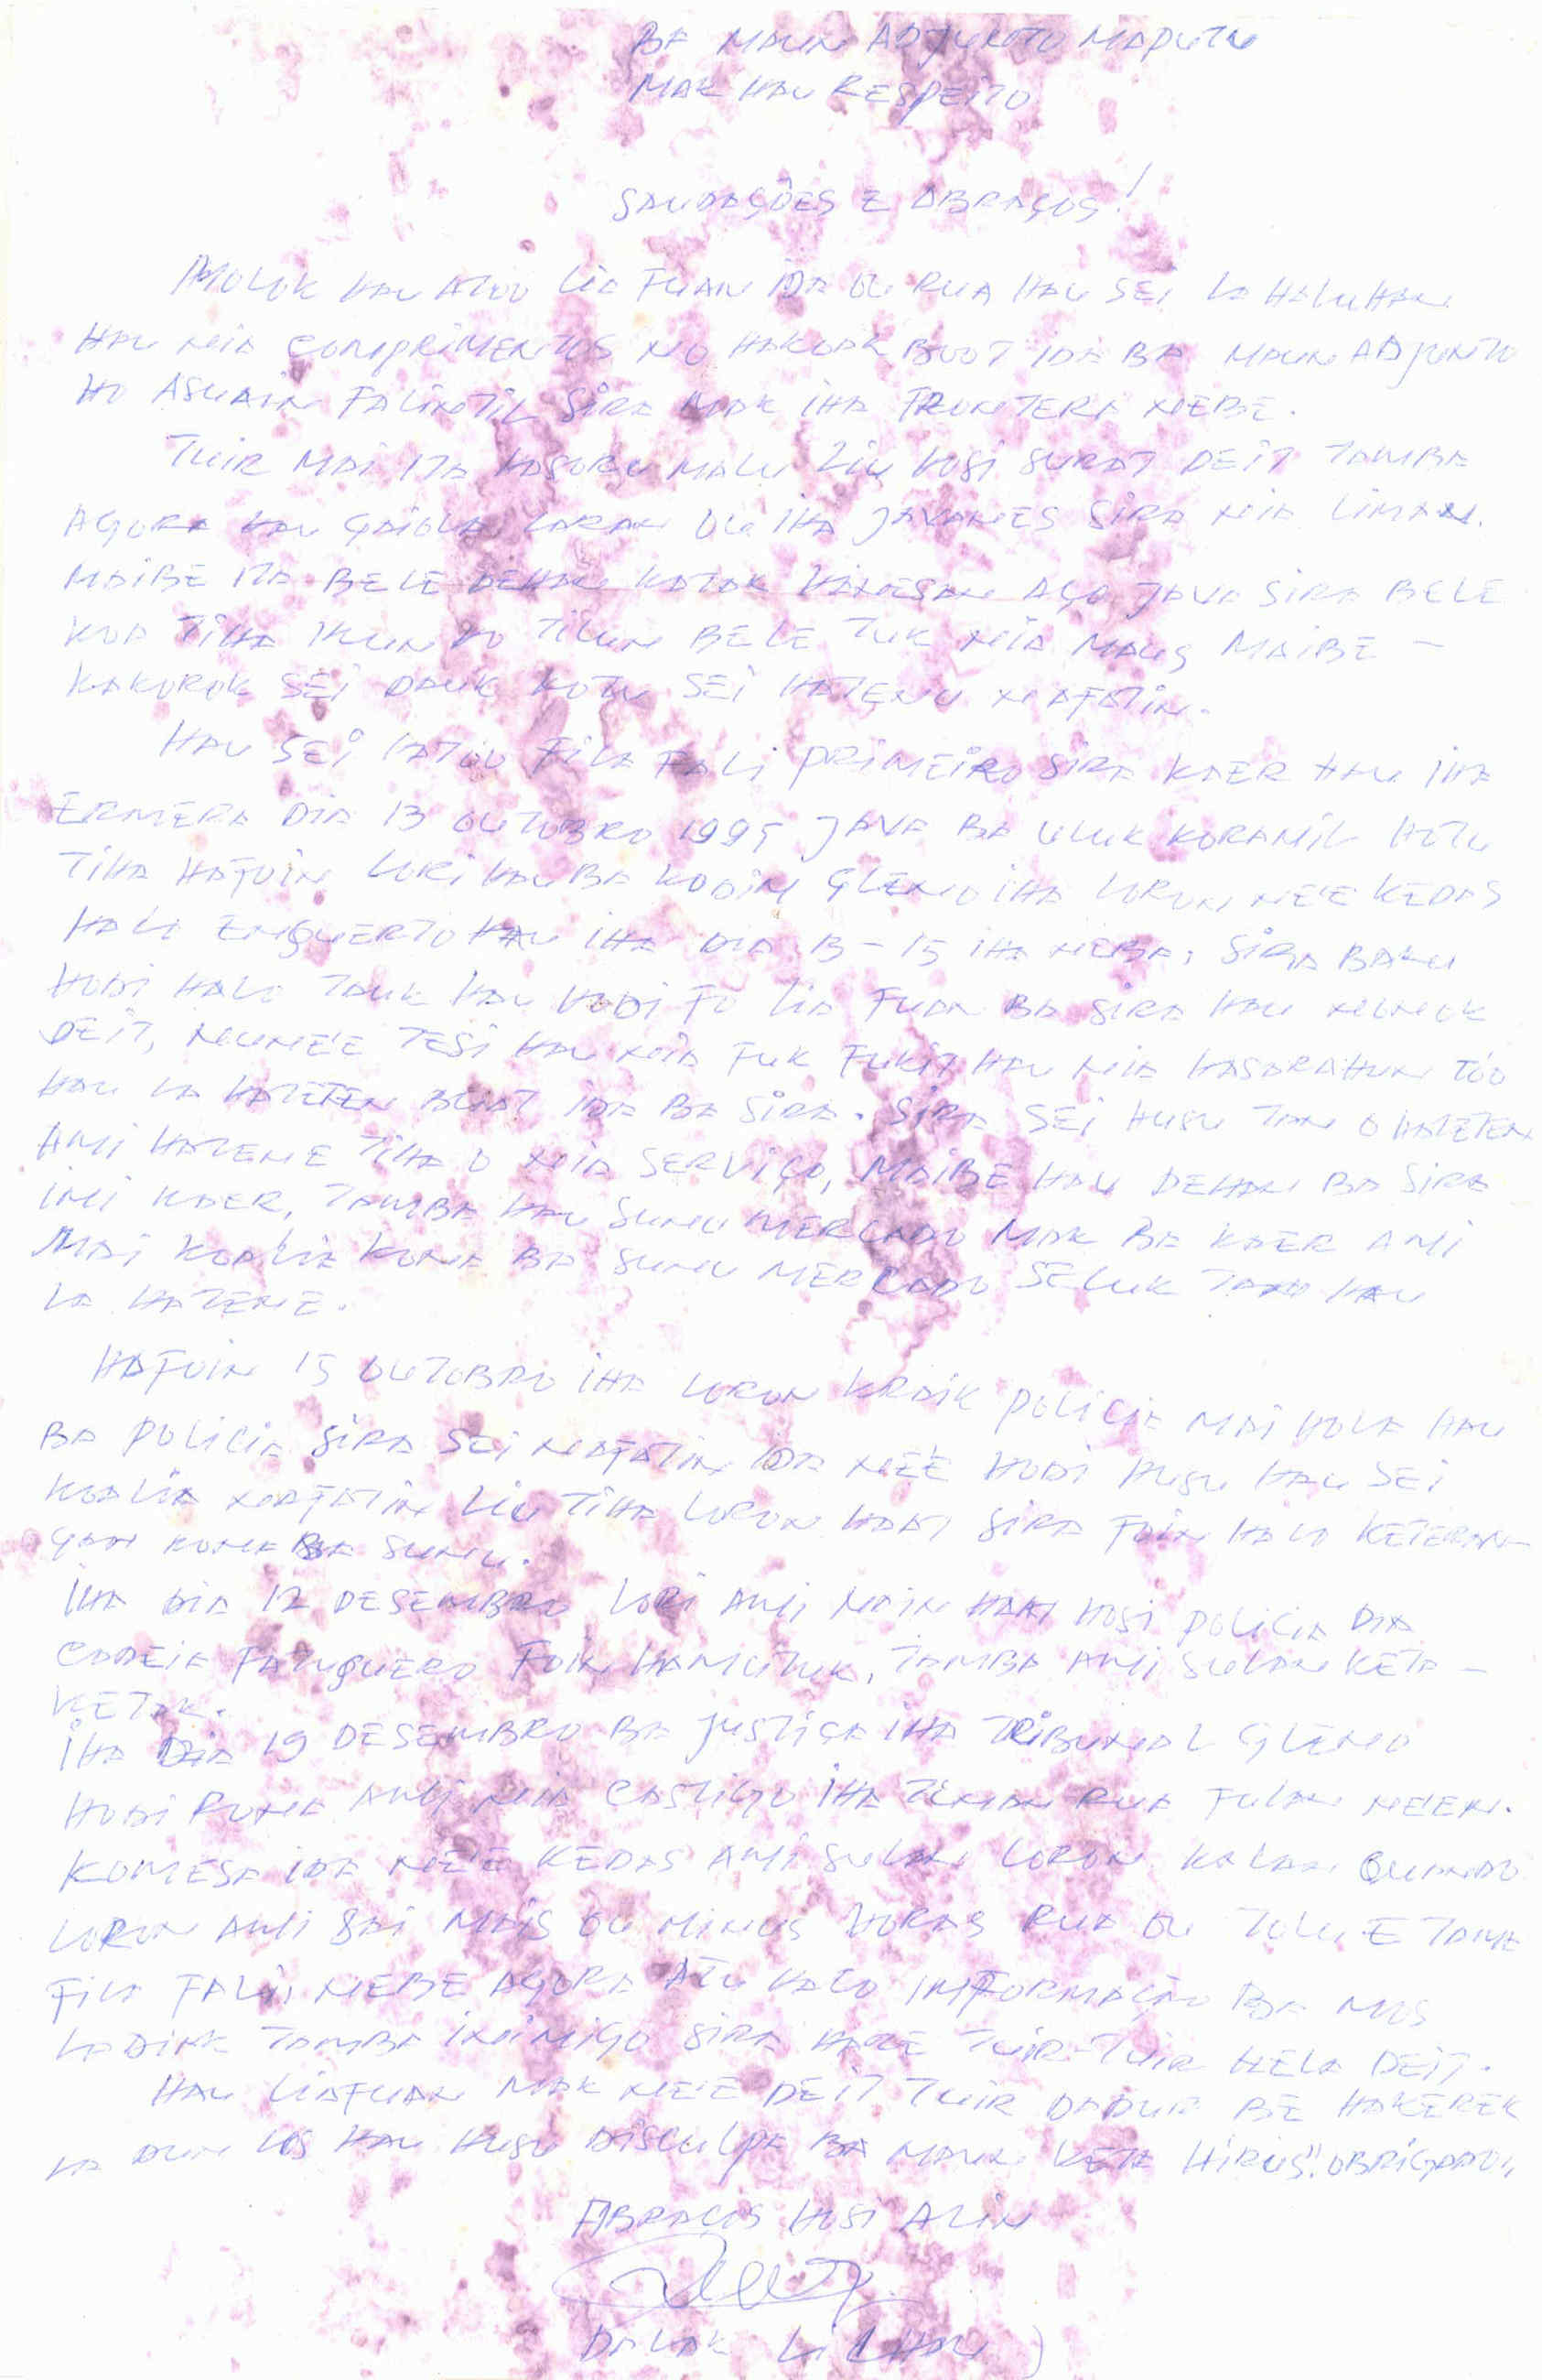 BA MAUN ADJUNTO MAPUTU
MAK HAU RESPEITO
SAUDAÇÕES E ABRAÇOS!
MOLOK HAU ATOU LIA FUAN IDA OU RUA HAU SEI LA HALUHAN
HAU NIA COMPRIMENTOS NO HAKOAK BOOT IDA BA MAUN ADJUNTO
HO ASUAIN FALINTIL SIRA MAK IHA FRONTERA NEBE.
TUIR MAI ITA HASORU MALU LIU HOSI SURAT DEIT TAMBA
AGORA HAU GAIOLA LARAN OU IHA JAVANES SIRA NIA LIMAN.
MAIBE ITA BELE DEHAN KATAK HANESAN AÇO JAVA SIRA BELE
KOA TIHA IKUN HO TILUN BELE TUK NIA MAUS MAIBE -
KAKOROK SEI DAUK KOTU SEI HATENU NAFATIN.
HAU SEI HATOU FILA FALI PRIMEIRO SIRA KAER HAU IHA
ERMERA DIA 13 OUTOBRO 1995 JAVA BA ULUK KORAMIL HOTU
TIHA HAFOIN LORI HAU BA KODIM GLENO IHA LORON NE'E KEDAS
HALO ENQUERTO HAU IHA DIA 13 - 15 IHA NEBA, SIRA BAKU
HODI HALO TAUK HAU HODI FO LIA FUAN BA SIRA HAU NONOK
DEIT, NUNE'E TESI HAU NIA FUK FUKIT HAU NIA HASARAHUN TÓO
HAU LA HATETEN BUAT IDA BA SIRA. SIRA SEI HUSU TAN O HATETEN
AMI HATENE TIHA O NIA SERVIÇO, MAIBE HAU DEHAN BA SIRA
IMI KAER, TAMBA HAU SUNU MERCADO MAK BA KAER AMI
MAI KOALIA KONA BA SUNU MERCADO SELUK TAN HAU
LA HATENE.
HAFOIN 15 OUTOBRO IHA LORON KRAIK POLICIA MAI HOLA HAU
BA POLICIA SIRA SEI NAFATIN IDA NE'E HODI HUSU HAU SEI
KOALIA NAFATIN LIU TIHA LORON HAAT SIRA FOIN HALO KETERAN-
GAN KONA BA SUNU.
IHA DIA 12 DESEMBRO LORI AMI NAIN HAAT HOSI POLICIA DIA
CADEIA FATUQUERO FOIN HAMUTUK, TAMBA AMI SULAN KETA -
KETAK.
IHA DIA 19 DESEMBRO BA JUSTIÇA IHA TRIBUNAL GLENO
HODI RONA AMI NIA CASTIGO IHA TINAN RUA FULAN NE'EN.
KOMESA IDA NE'E KEDAS AMI SULAN LORON KALAN QUANDO
LORON AMI SAI MAIS OU MINUS HORAS RUA OU TOLU E TAMA
FILA FALI, NEBE AGORA ATU HALO INFORMAÇÃO BA MOS
LADIAK TAMBA INIMIGO SIRA HARE TUIR-TUIR HELA DEIT.
HAU LIAFUAN MAK NE'E DEIT TUIR DADUR BE HAKEREK
LA DUN LOS HAU HUSU DISCULPA BA MAUN KETA HIRUS". OBRIGADO,,
ABRACOS HOSI ALIN